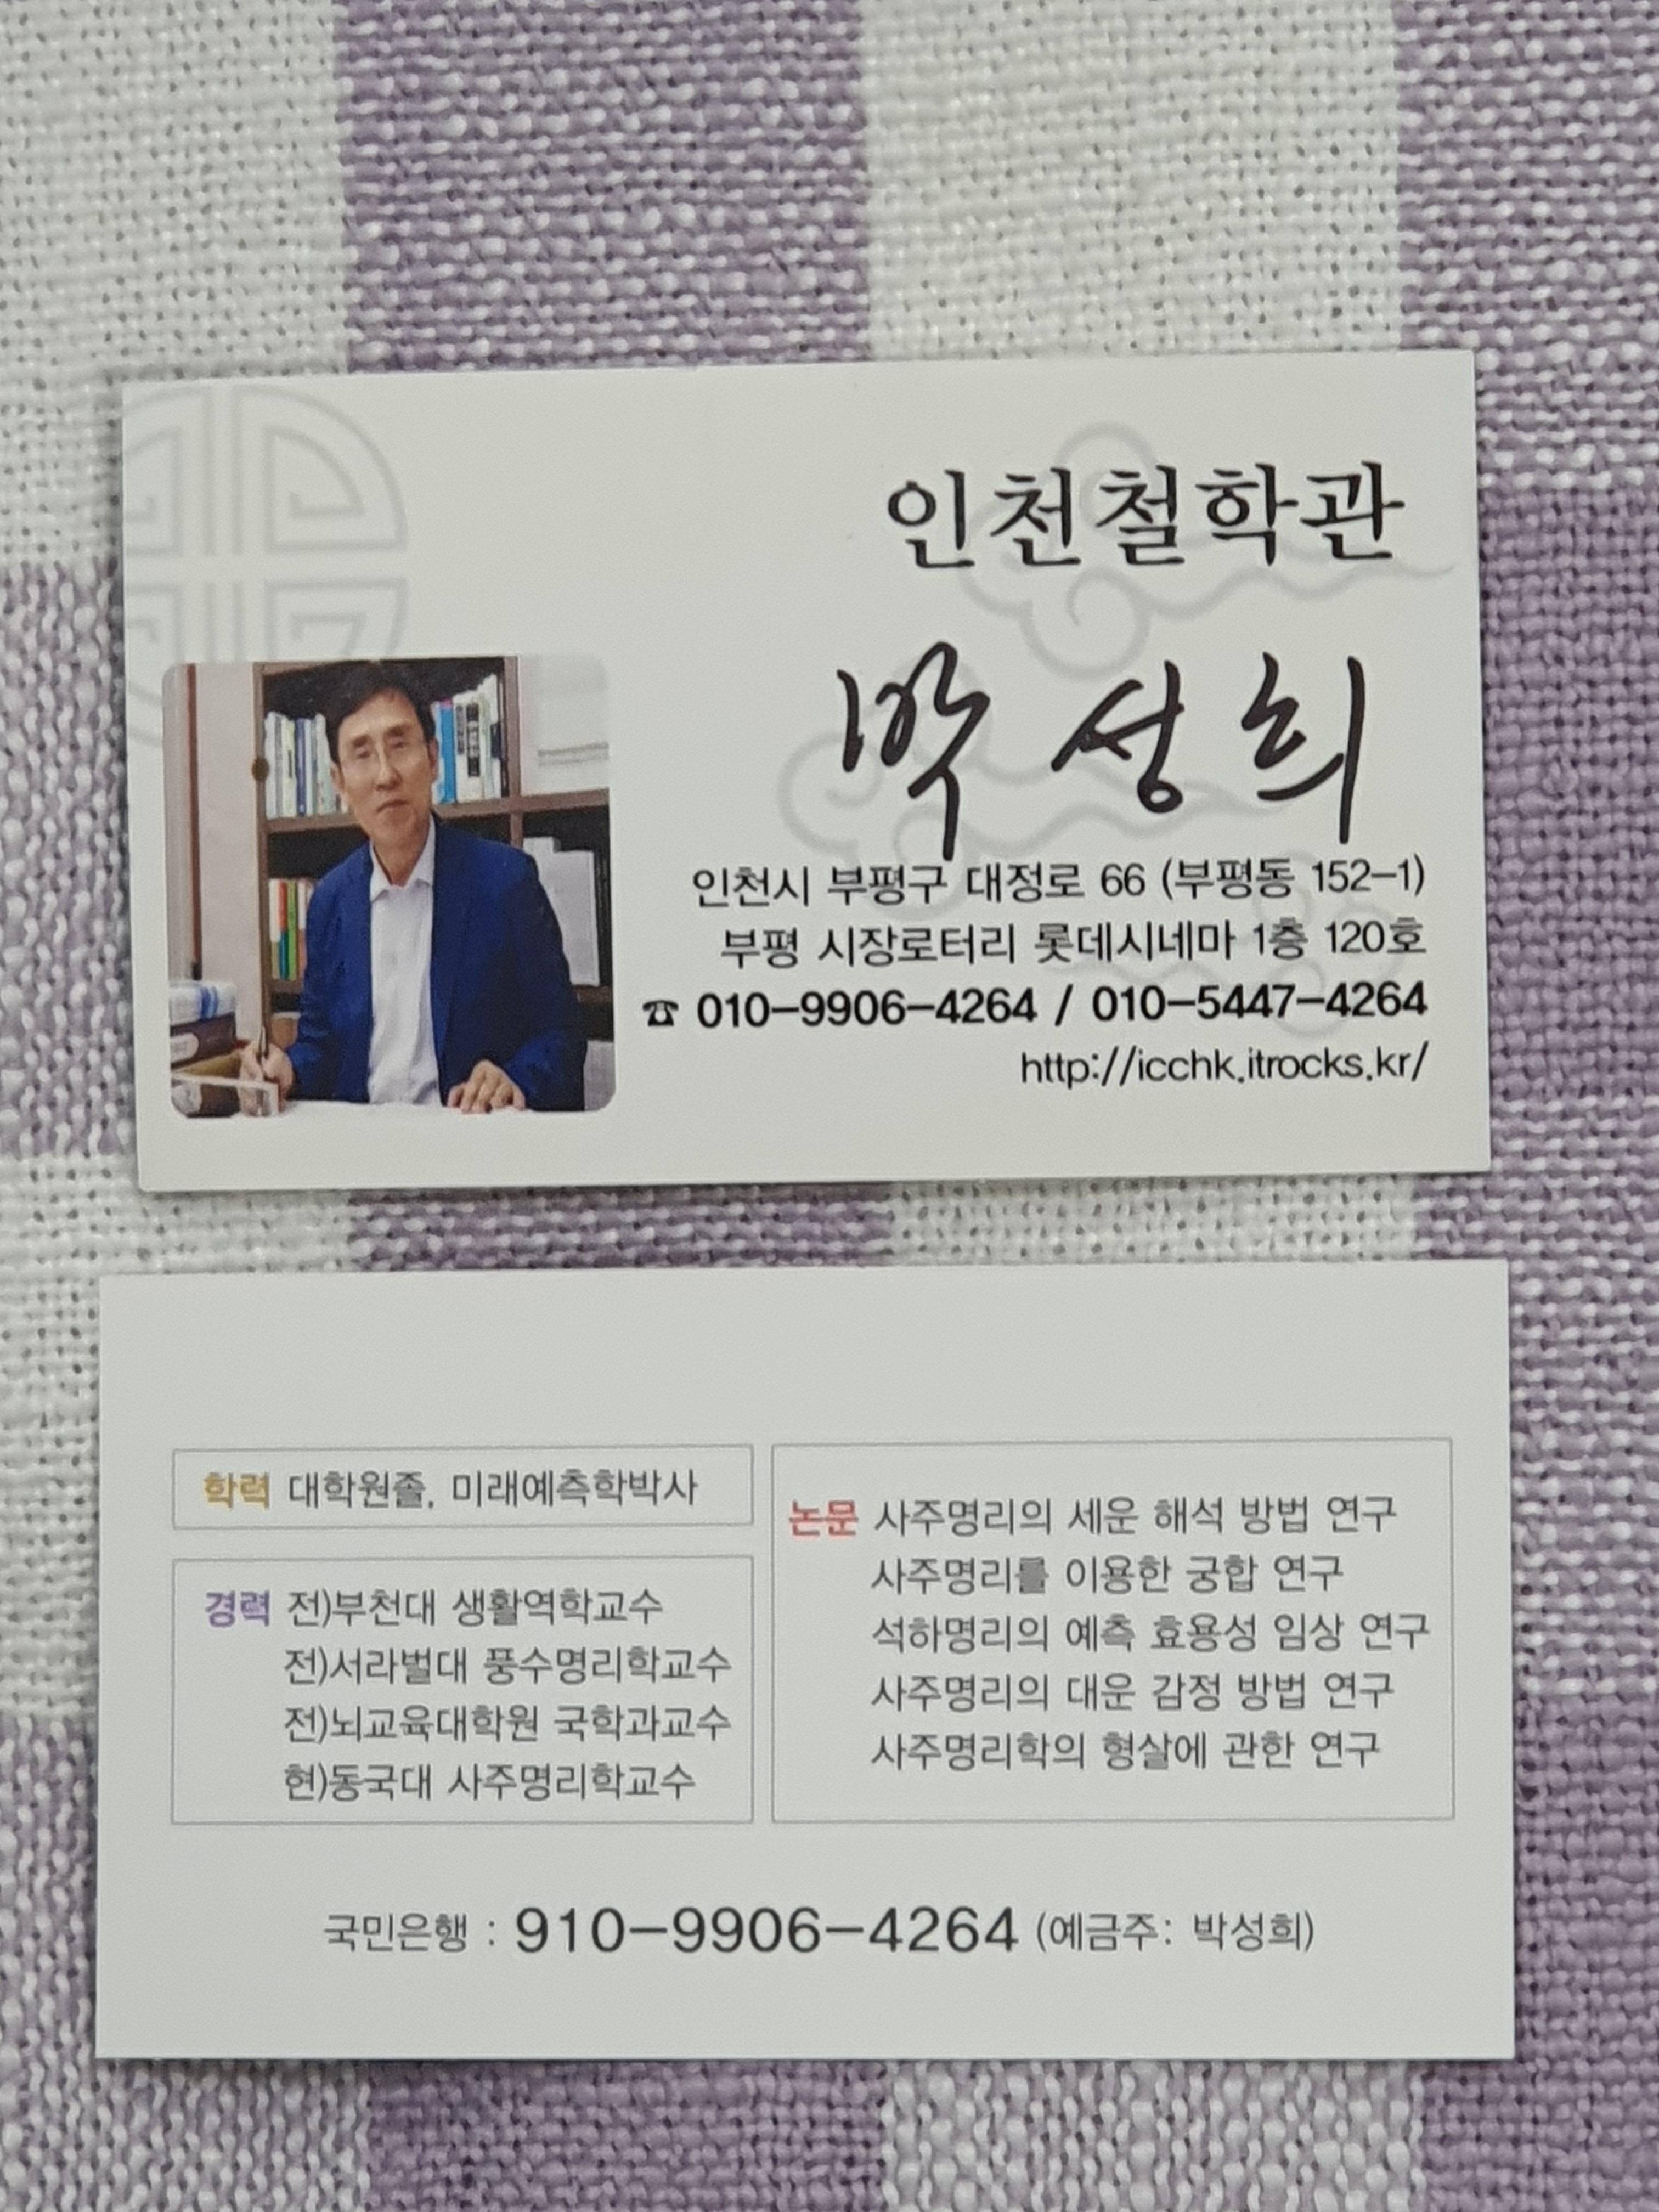 인천철학관
박성희
인천시 부평구 대정로 66 (부평동 152-1)
부평 시장로터리 롯데시네마 1층 120호
☎ 010-9906-4264 / 010-5447-4264
http://icchk.itrocks.kr/
학력 대학원졸, 미래예측학박사
경력 전)부천대 생활역학교수
전)서라벌대 풍수명리학교수
전)뇌교육대학원 국학과교수
현)동국대 사주명리학교수
논문 사주명리의 세운 해석 방법 연구
사주명리를 이용한 궁합 연구
석하명리의 예측 효용성 임상 연구
사주명리의 대운 감정 방법 연구
사주명리학의 형살에 관한 연구
국민은행 : 910-9906-4264 (예금주: 박성희)